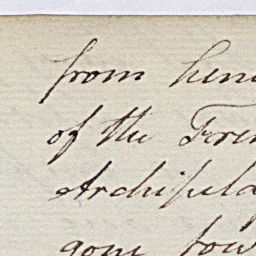 from hen
of the Fern
Archipela
gone tow